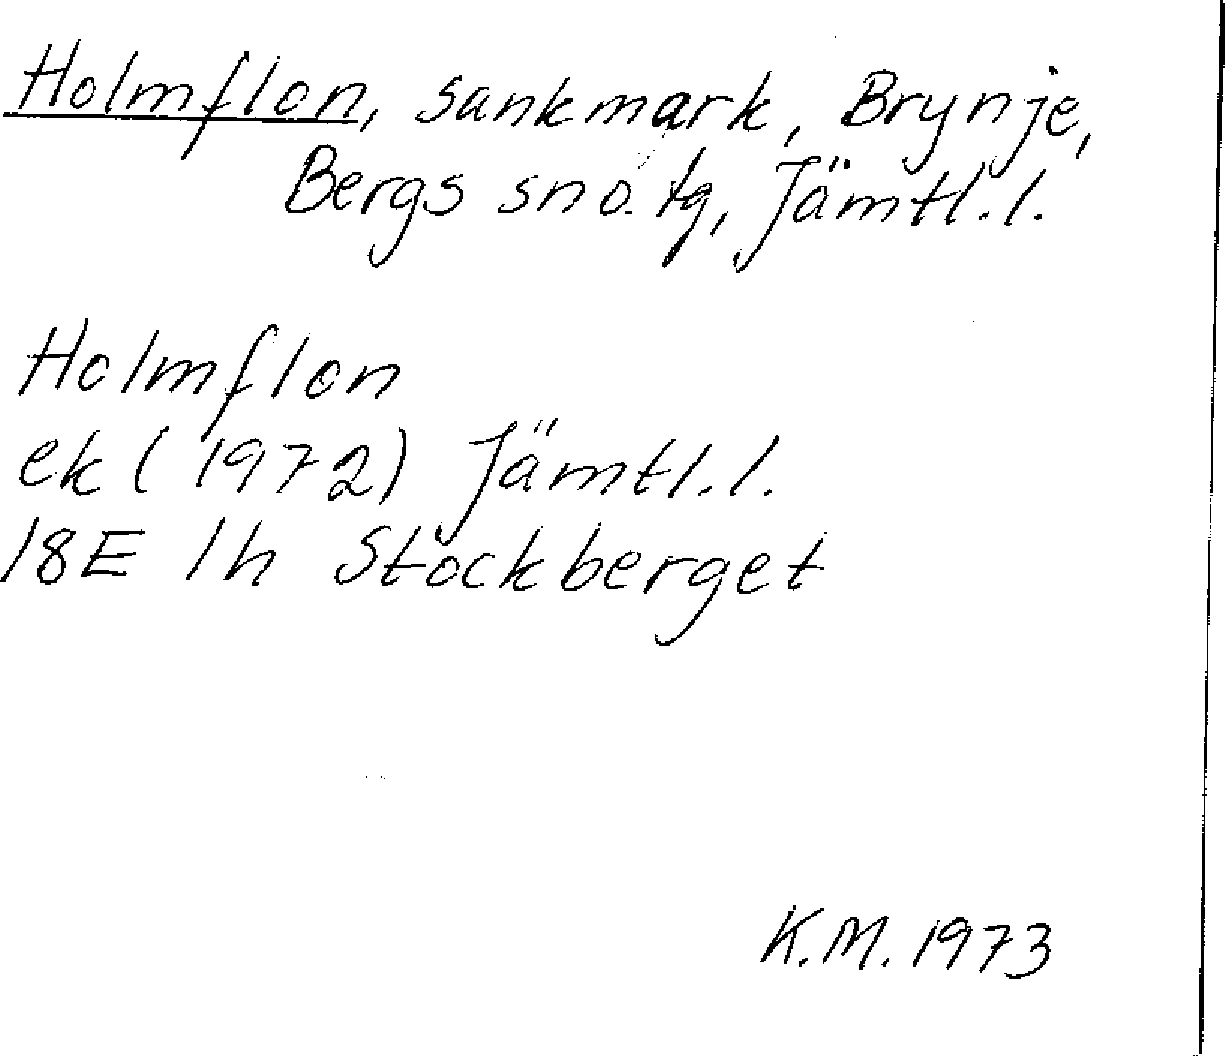 Holmflon, sankmark, Brynje,
Bergs sn o. tg, Jämtl. l.
Holmflon
ek (1972) Jämtl. l.
18E 1h Stockberget
K.M. 1973